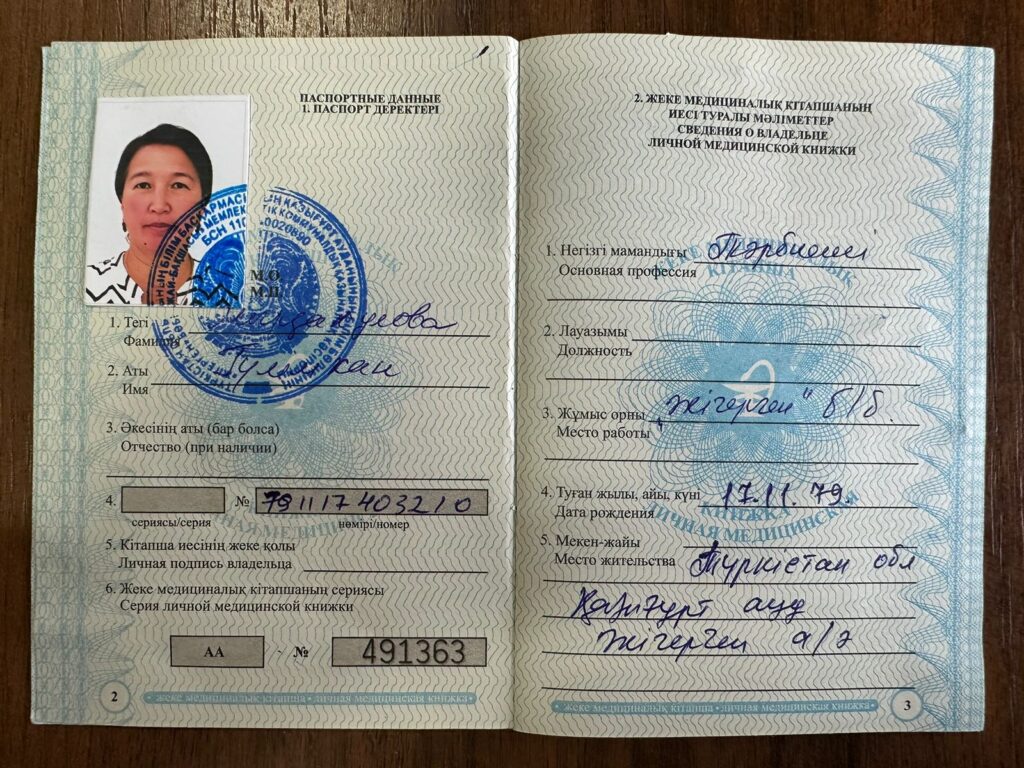 ПАСПОРТНЫЕ ДАННЫЕ
1. ПАСПОРТ ДЕРЕКТЕРІ
М.О.
М.П.
1. Тегі
Фамилия
2. Аты
Имя
3. Әкесінің аты (бар болса)
Отчество (при наличии)
4. № 791117403210
сериясы/серия нөмірі/номер
5. Кітапша иесінің жеке қолы
Личная подпись владельца
6. Жеке медициналық кітапшаның сериясы
Серия личной медицинской книжки
АА - № 491363
2
• жеке медициналық кітапша • личная медицинская книжка •
2. ЖЕКЕ МЕДИЦИНАЛЫҚ КІТАПШАНЫҢ
ИЕСІ ТУРАЛЫ МӘЛІМЕТТЕР
СВЕДЕНИЯ О ВЛАДЕЛЬЦЕ
ЛИЧНОЙ МЕДИЦИНСКОЙ КНИЖКИ
1. Негізгі мамандығы Тәрбиеші
Основная профессия
2. Лауазымы
Должность
3. Жұмыс орны "Жігерген" б/б.
Место работы
4. Туған жылы, айы, күні 17.11.79.
Дата рождения
5. Мекен-жайы
Место жительства Түркістан обл
Қазығұрт ауд
Жігерген а/ә
• жеке медициналық кітапша • личная медицинская книжка •
3